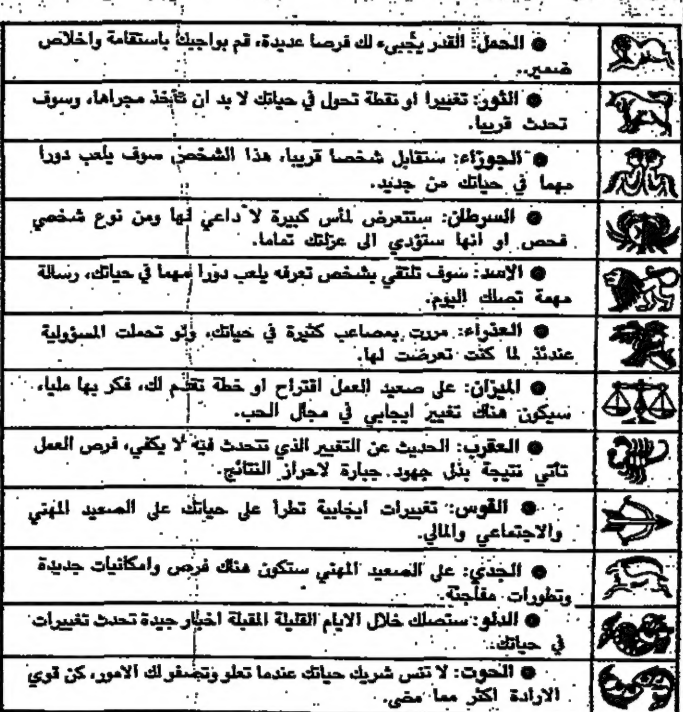 ● الحمل: القدر يجيء لك فرصا عديدة، قم بواجبك باستقامة واخلاص
ضمير.
● الثور: تغييرا او نقطة تحول في حياتك لا بد ان تأخذ مجراها، وسوف
تحدث قريبا.
● الجوزاء: ستقابل شخصا قريبا، هذا الشخص سوف يلعب دورا
مهما في حياتك من جديد.
● السرطان: ستتعرض لمأس كبيرة لا داعي لها ومن نوع شخصي
فحص او انها ستؤدي الى عزلتك تماما.
● الاسد: سوف تلتقي بشخص تعرفه يلعب دورا مهما في حياتك، رسالة
مهمة تصلك اليوم.
● العذراء: مررت بمصاعب كثيرة في حياتك، ولو تحملت المسؤولية
عندئذ لما كنت تعرضت لها.
● الميزان: على صعيد العمل اقتراح او خطة تقدم لك، فكر بها مليا،
سيكون هناك تغيير ايجابي في مجال الحب.
● العقرب: الحديث عن التغيير الذي تتحدث فيه لا يكفي، فرص العمل
تأتي نتيجة بذل جهود جبارة لاحراز النتائج.
● القوس: تغييرات ايجابية تطرأ على حياتك على الصعيد المهني
والاجتماعي والمالي.
● الجدي: على الصعيد المهني ستكون هناك فرص وامكانيات جديدة
وتطورات مفاجئة.
● الدلو: ستصلك خلال الايام القليلة المقبلة اخبار جيدة تحدث تغييرات
في حياتك.
● الحوت: لا تنس شريك حياتك عندما تعلو وتصفو لك الامور، كن قوي
الارادة اكثر مما مضى.